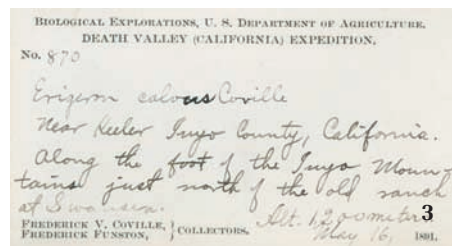 BIOLOGICAL EXPLORATIONS, U. S. DEPARTMENT OF AGRICULTURE.
DEATH VALLEY (CALIFORNIA) EXPEDITION.
No. 870
Erigeron calvus Coville
Near Keeler Inyo County, California.
Along the foot of the Inyo Moun-
tains just north of the old ranch
at Swansea.
Alt. 1200 meter 3
FREDERICK V. COVILLE,
FREDERICK FUNSTON, } COLLECTORS. May 16, 1891.